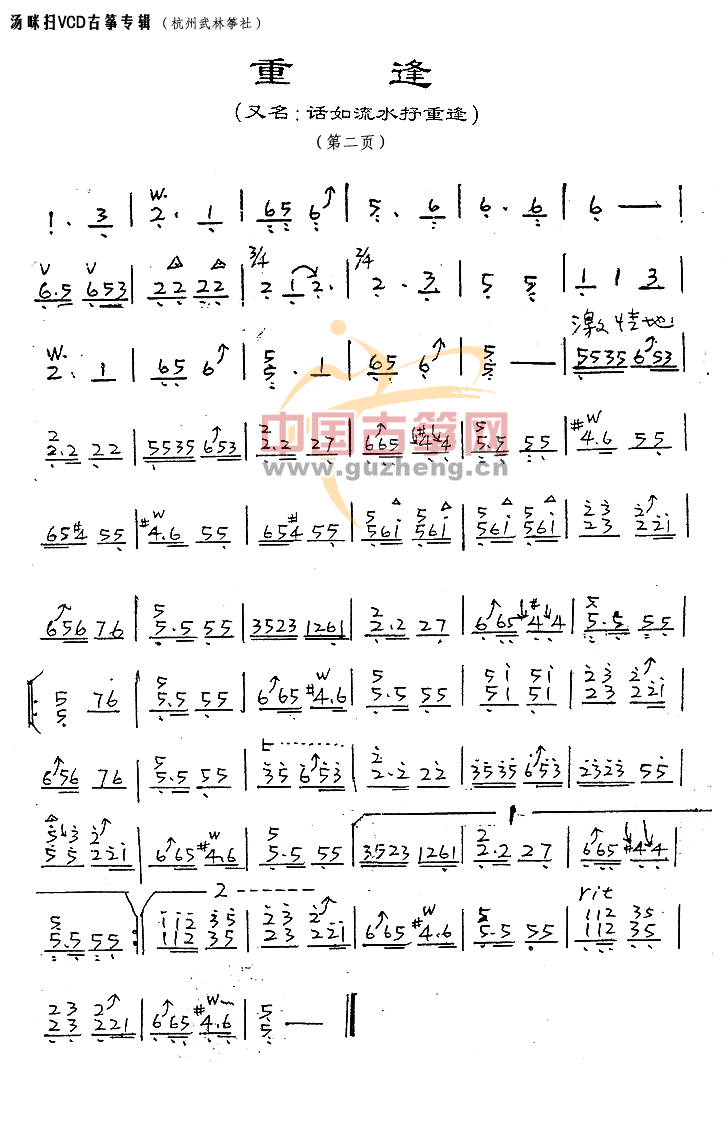 汤咪扫VCD古筝专辑（杭州武林筝社）
重 逢
（又名：话如流水抒重逢）
（第二页）
1. 3 | 2. 1 | 65 6 | 5. 6 | 6. 6 | 6 — |
W.
6.5 653 | 22 22 | 2 1 2. | 2. 3 | 5 5 | 1 1 3 |
V V 3/4 2/4
激情地
2. 1 | 65 6 | 5. 1 | 65 6 | 5 — | 5535 653 |
W.
中国古筝网
www.guzheng.cn
2.2 22 | 5535 653 | 2.2 27 | 665 #44 | 5.5 55 | #4.6 55 |
65#4 55 | #4.6 55 | 65#4 55 | 561 561 | 561 561 | 23 221 |
656 76 | 5.5 55 | 3523 1261 | 2.2 27 | 665 #44 | 5.5 55 |
5 76 | 5.5 55 | 665 #4.6 | 5.5 55 | 51 51 | 23 221 |
656 76 | 5.5 55 | 35 653 | 2.2 22 | 3535 653 | 2323 55 |
1
55 221 | 665 #4.6 | 5.5 55 | 3523 1261 | 2.2 27 | 665 #44 |
2
rit
5.5 55 | 112 35 | 23 221 | 665 #4.6 | 5.5 55 | 112 35 |
23 221 | 665 #4.6 | 5 — |